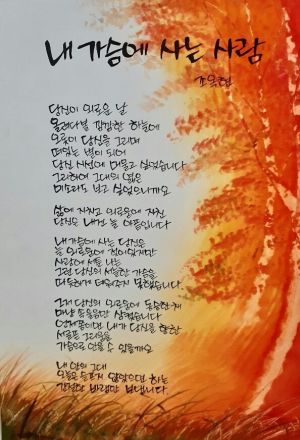 내 가슴에 사는 사람
당신이 외로운 날
올려다볼 깜깜한 하늘에
오롯이 당신을 그리며
떠있는 별이 되어
당신 시선에 머물고 싶었습니다
그리하여 그대의
미소라도 보고 싶었으니까요
삶에 지치고 외로움에 지친
당신은 내겐 늘 아픔입니다
내 가슴에 사는 당신은
늘 외로움에
사랑에 서툰 나는
그런 당신의 서늘한 가슴을
따뜻하게 데워주지 못했습니다
그저 당신의 외로움에 동승한 채
마냥 손을 삼켰습니다
언제쯤이면 내가 당신을 향한
서글픈 그리움을
가슴으로 안을 수 있을까요
내 안의 그대
오늘은 슬프지 않았으면 하는
간절한 바램만 보냅니다